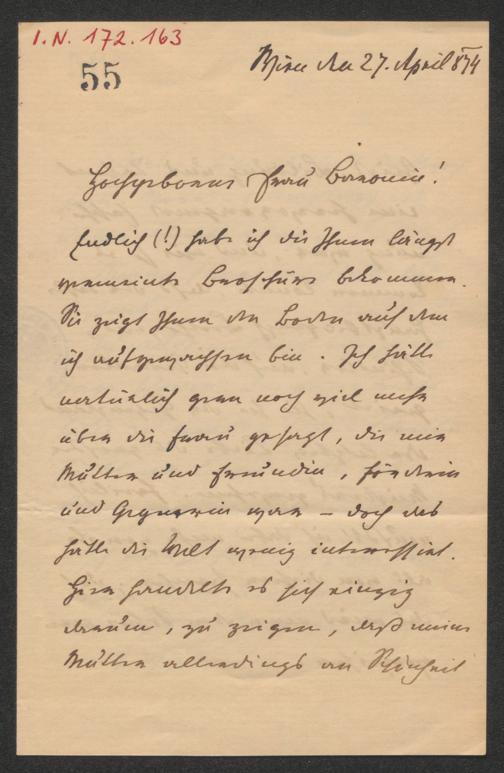 I.N. 172.163
55
Wien den 27. April 874
Hochgeborene Frau Baronin!
Endlich (!) habe ich die Ihnen längst
gemeinte Broschüre bekommen.
Sie zeigt Ihnen den Boden auf dem
ich aufgewachsen bin. Ich hätte
natürlich gern noch viel mehr
über die Frau gesagt, die mir
Mutter und Freundin, Förderin
und Gegnerin war – doch das
hätte die Welt wenig interessirt.
Hier handelte es sich einzig
darum, zu zeigen, daß meine
Mutter allerdings an Schönheit